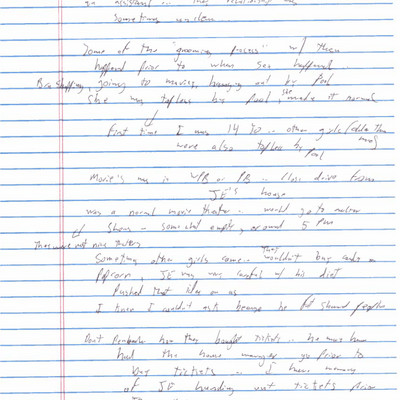 Sometimes unclear
Some of the "grooming process" w/ them
happened prior to when sex happened...
Bra Shopping, going to movies, hanging out by pool
She was topless by pool, she made it normal
First time I was 14 yo .. other girls (older than me)
were also topless by pool
Movie's was in WPB or PB .. close drive from
JE's house
was a normal movie theater .. would go to matinee
Show - somewhat empty, around 5 pm
They were not nice theaters
Sometimes other girls came .. They wouldn't buy candy or
popcorn, JE was very careful w/ his diet
Pushed that idea on us
I knew I wouldn't ask because he fat shamed people
Don't remember how they bought tickets .. he must have
had the house manager go prior to
buy tickets .. I have memory
of JE handing out tickets prior